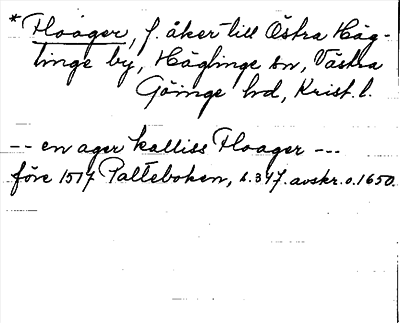 *Floager, f. åker till Östra Häg-
linge by, Häglinge sn, Västra
Göinge hd, Krist. l.
-- en ager kalliss Floager ---
före 1517 Palteboken, s. 347. avskr. o. 1650.